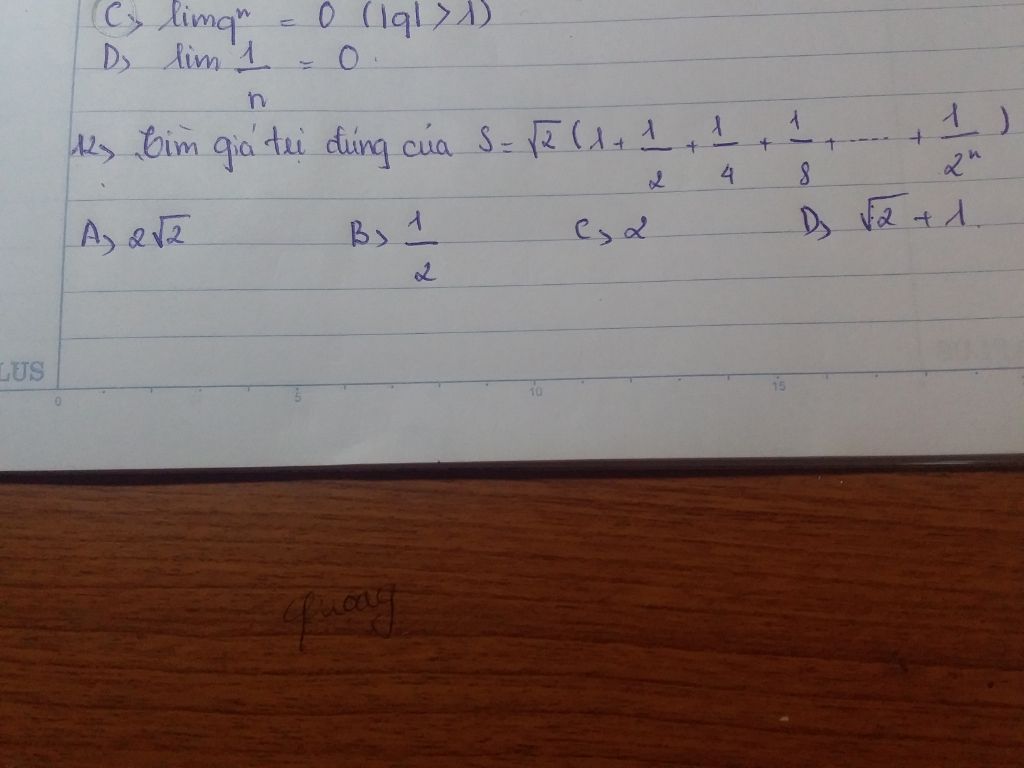 C, lim qⁿ = 0 (|q| > 1)
D, lim 1/n = 0.
12, Tìm giá trị đúng của S = √2 (1 + 1/2 + 1/4 + 1/8 + ..... + 1/2ⁿ)
A, 2√2 B, 1/2 C, 2 D, √2 + 1.
LUS
0 5 10 15